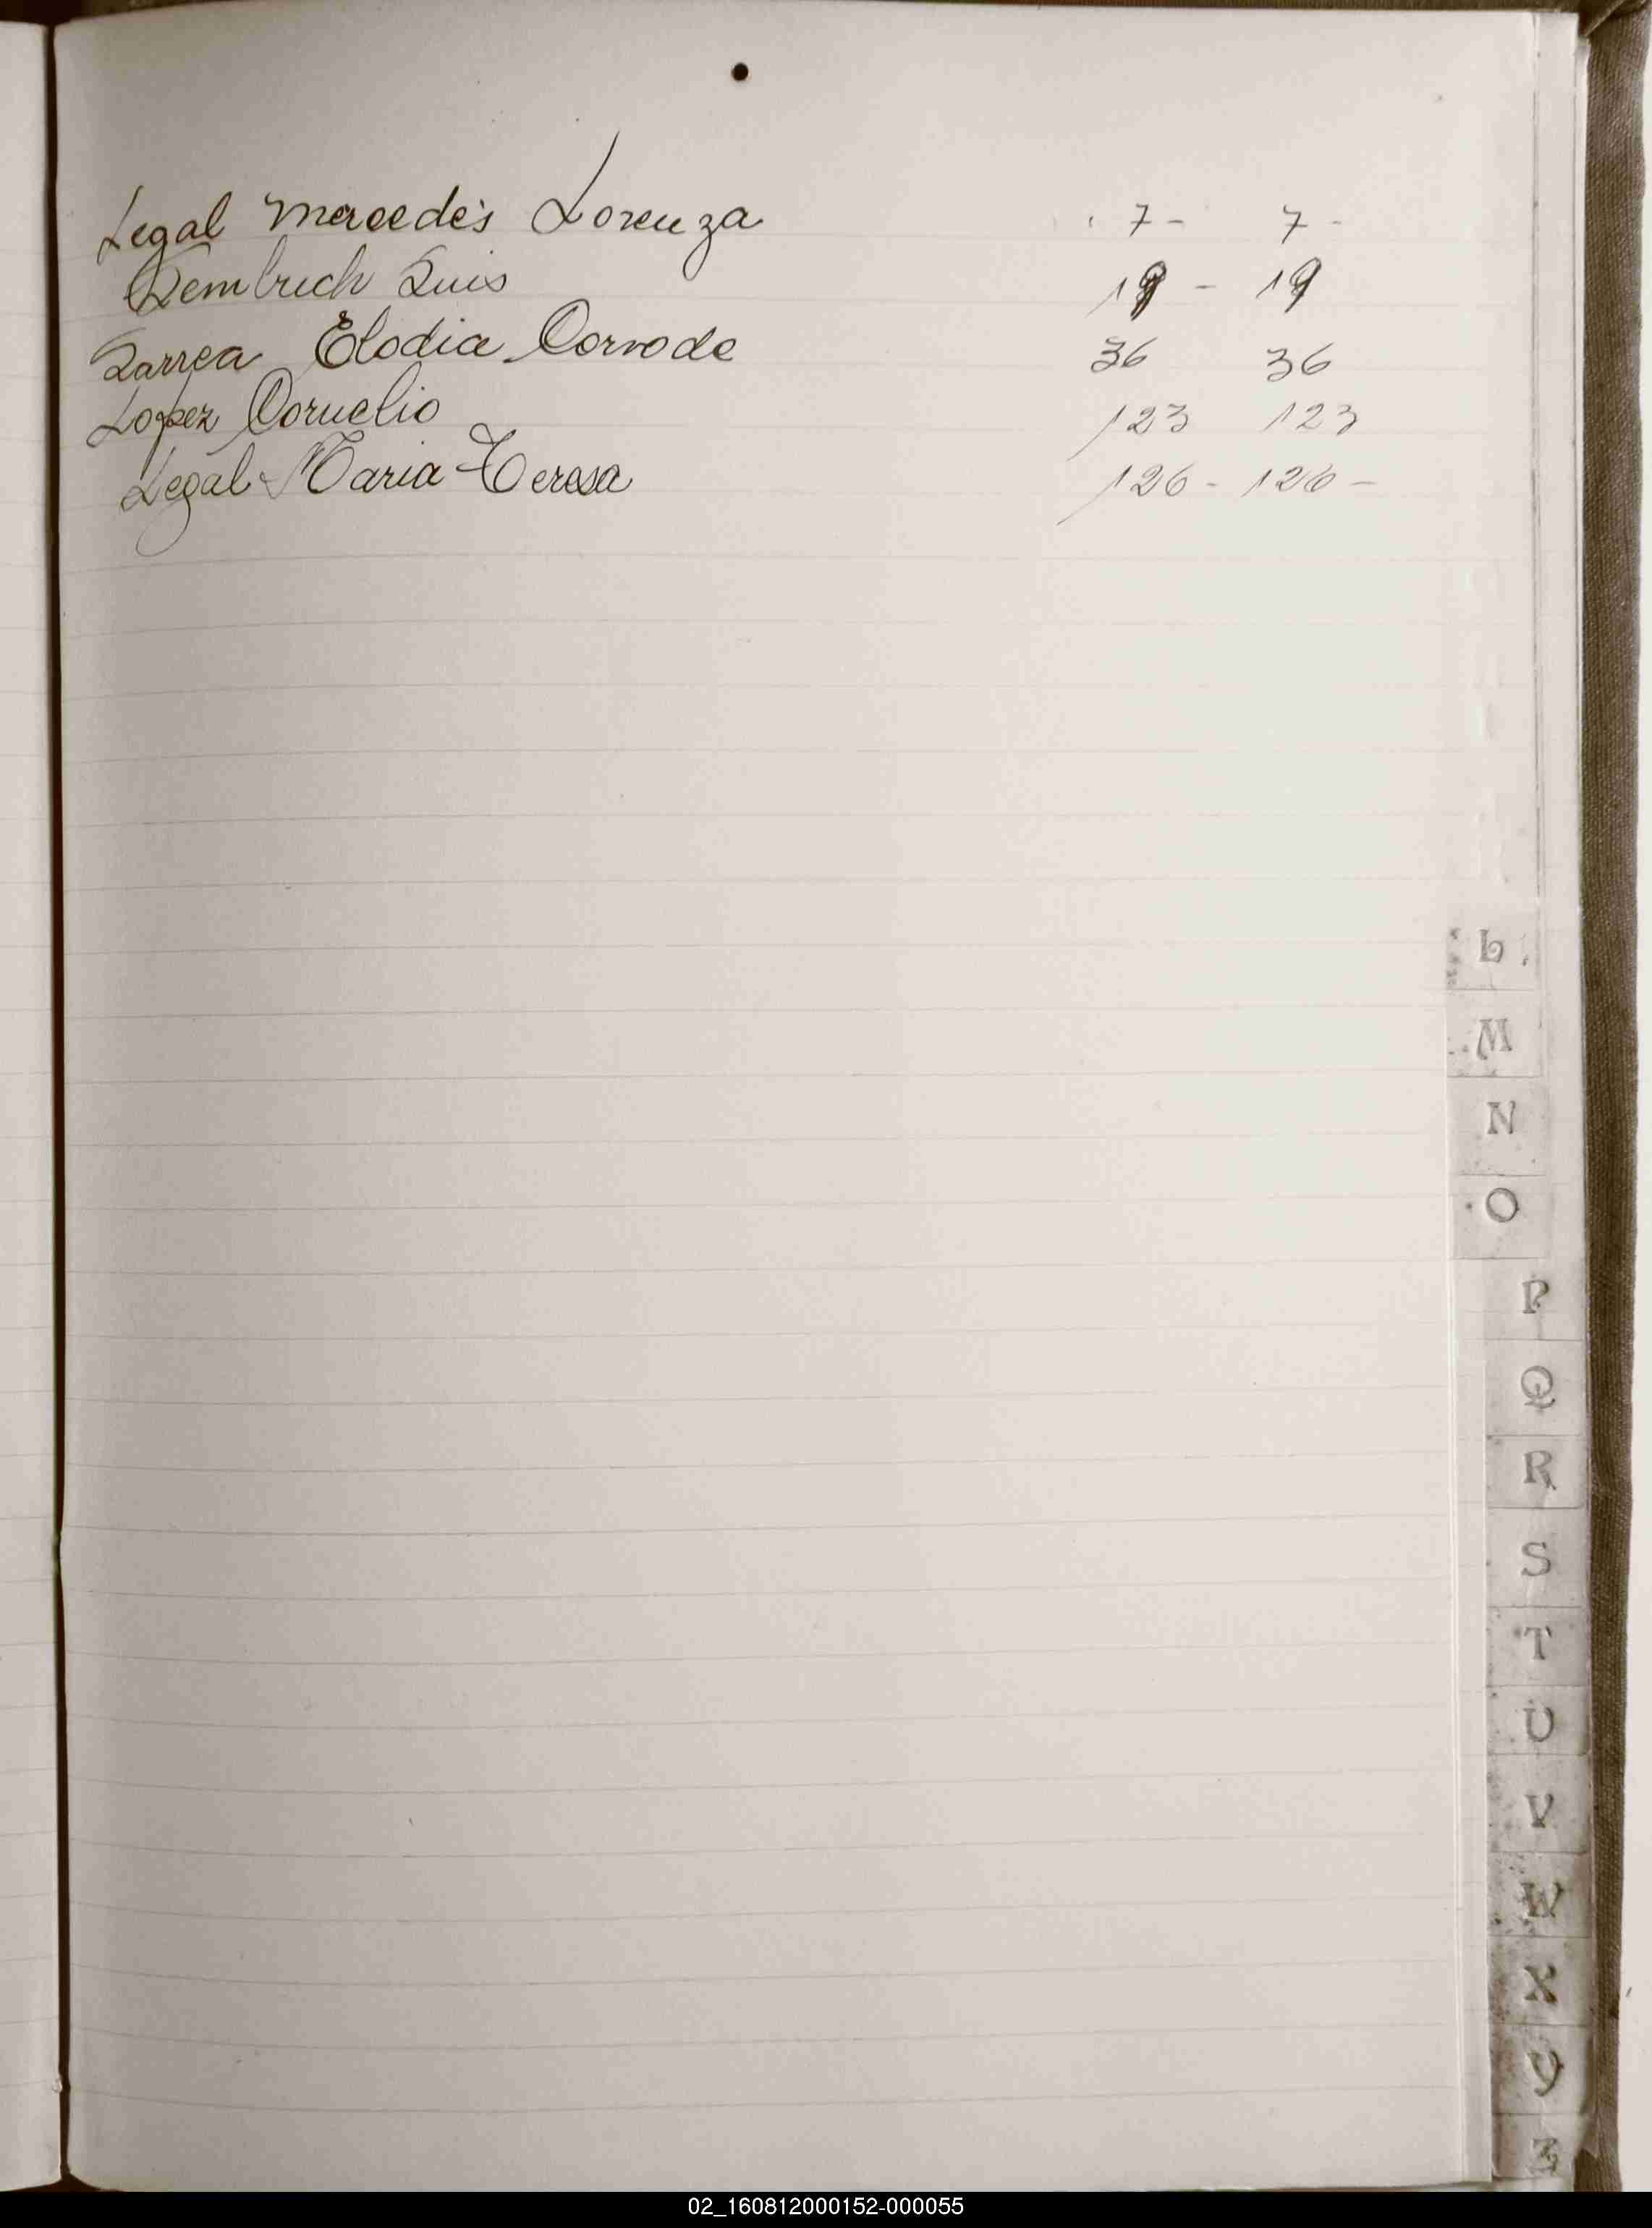 Legal Mercedes Lorenza 7 - 7 -
Lembrich Luis 19 - 19
Larrea Elodia Corvo de 36 36
Lopez Cornelio 123 123
Legal Maria Teresa 126 - 126 -
L
M
N
O
P
Q
R
S
T
U
V
W
X
Y
Z
02_160812000152-000055